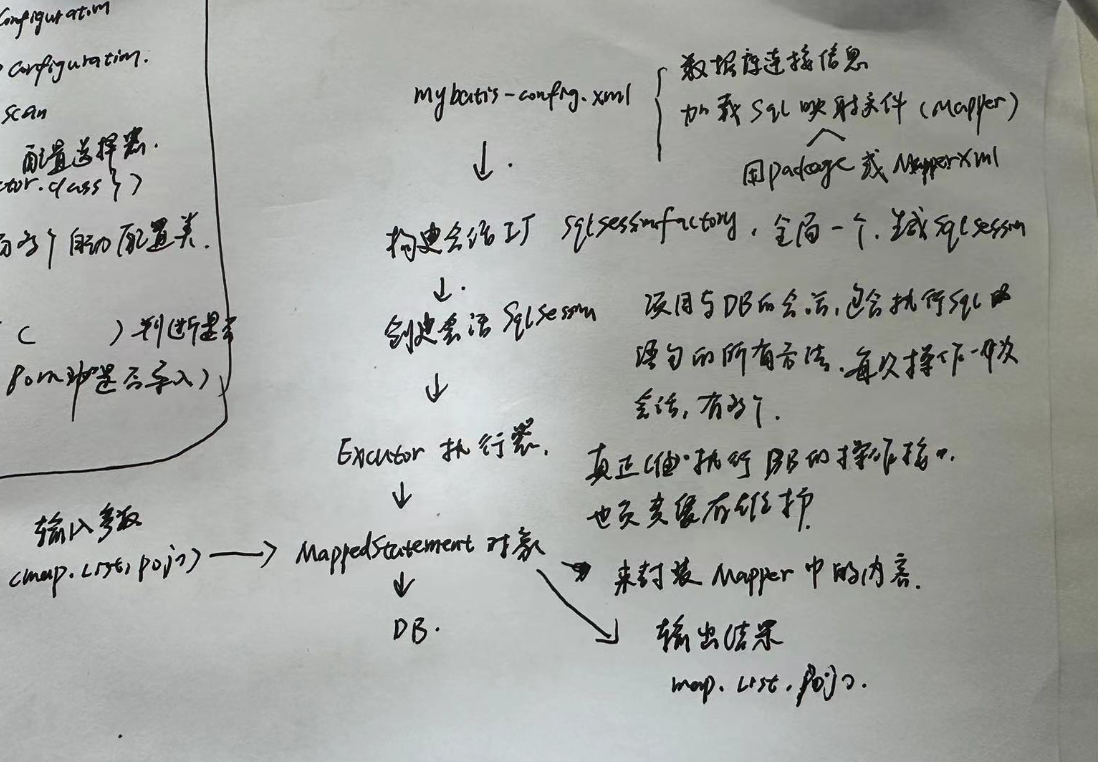 Configuration
Configuration.
scan
配置选择器.
ctor.class})
个自动配置类.
( C ) 判断是否
pom 是否导入)
mybatis-config.xml
数据库连接信息
加载Sql映射文件 (Mapper)
用package 或 MapperXml
↓.
构建会话工厂 SqlSessionfactory, 全局一个. 生成SqlSession
↓.
创建会话 SqlSession
项目与DB的会话, 包含执行Sql
语句的所有方法. 每次操作一次
会话, 有多个.
↓
Excutor 执行器.
真正 执行DB的操作接口.
也负责缓存维护
↓
输入参数
(map. List. pojo) → MappedStatement 对象
来封装 Mapper 中的内容.
↓
DB.
输出结果
map. List. pojo.